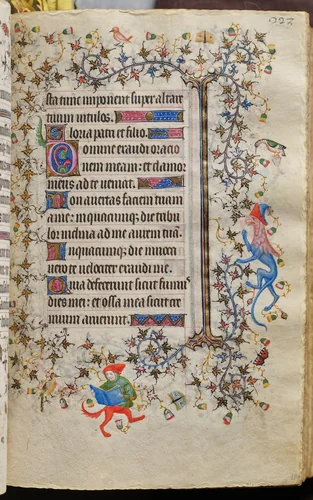 223
sta tunc imponent super altare
tuum vitulos.
Gloria patri et filio.
Domine exaudi oracio
nem meam: et clamor
meus ad te veniat.
Non avertas faciem tuam
a me: in quacumque die tribu
lor inclina ad me aurem tuam.
In quacumque die invoca
vero te velociter exaudi me.
Quia defecerunt sicut fumus
dies mei: et ossa mea sicut cre
mium aruerunt.